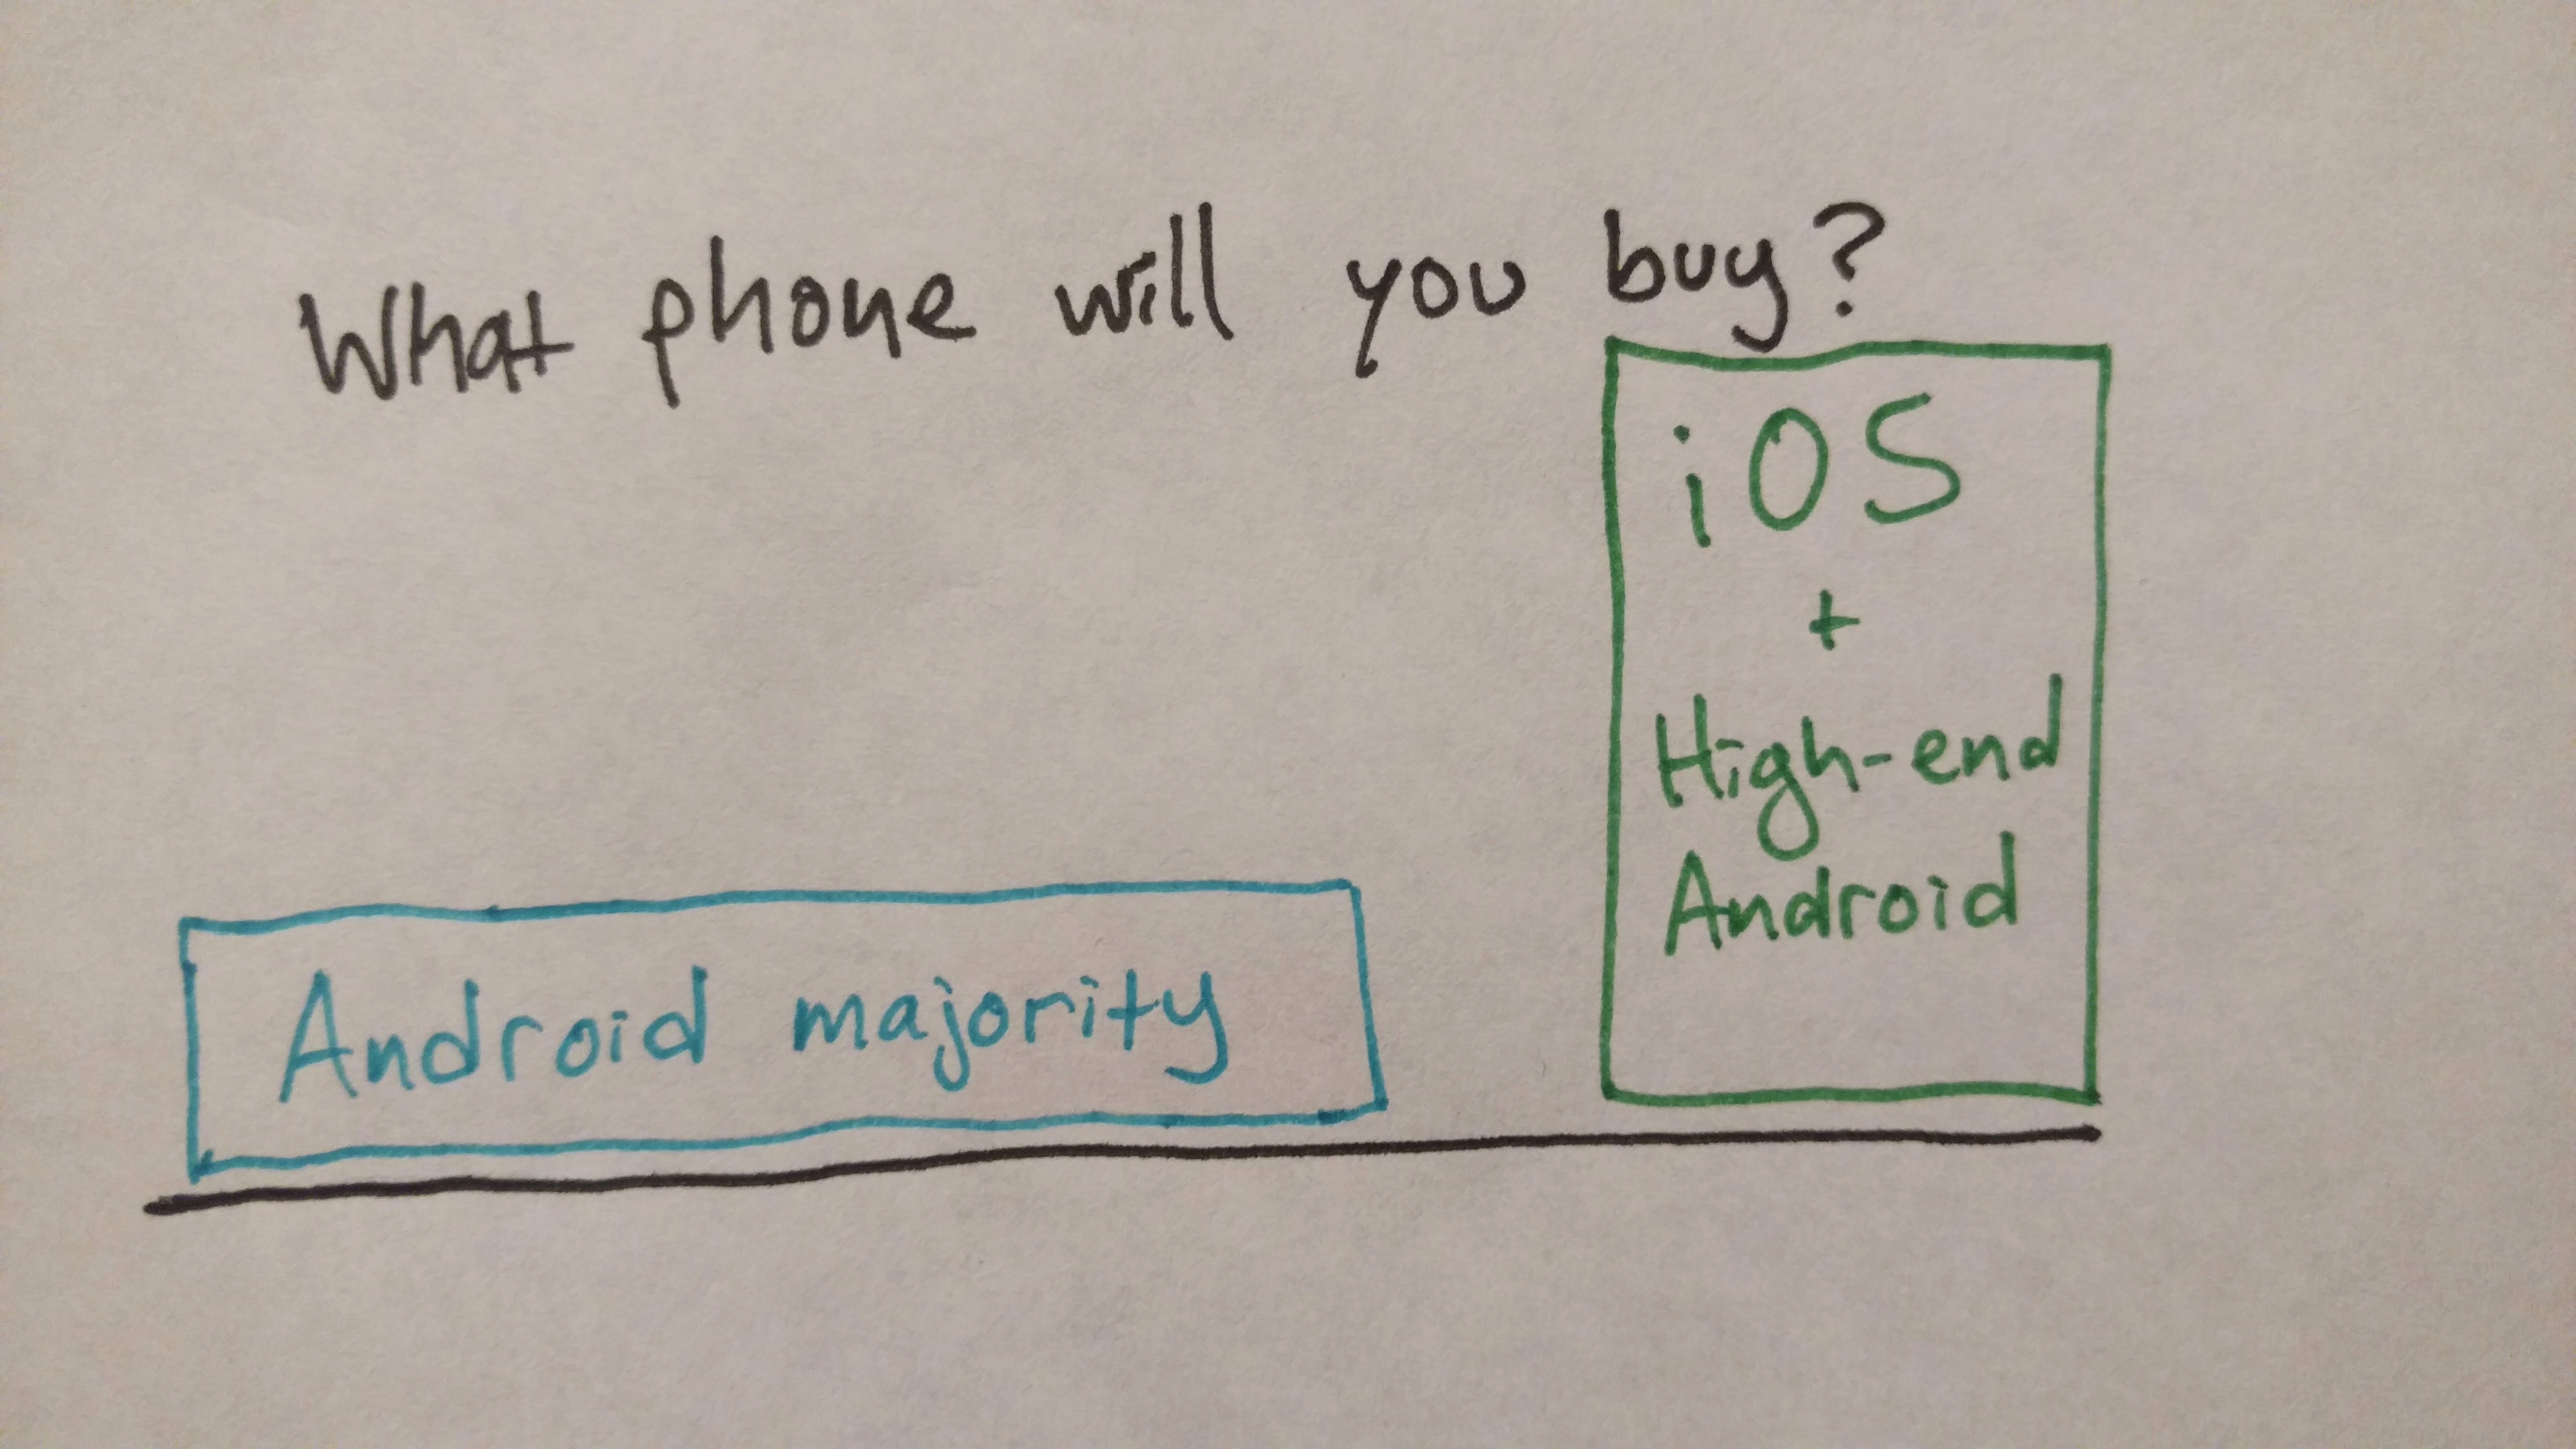 What phone will you buy?
iOS
+
High-end
Android
Android majority